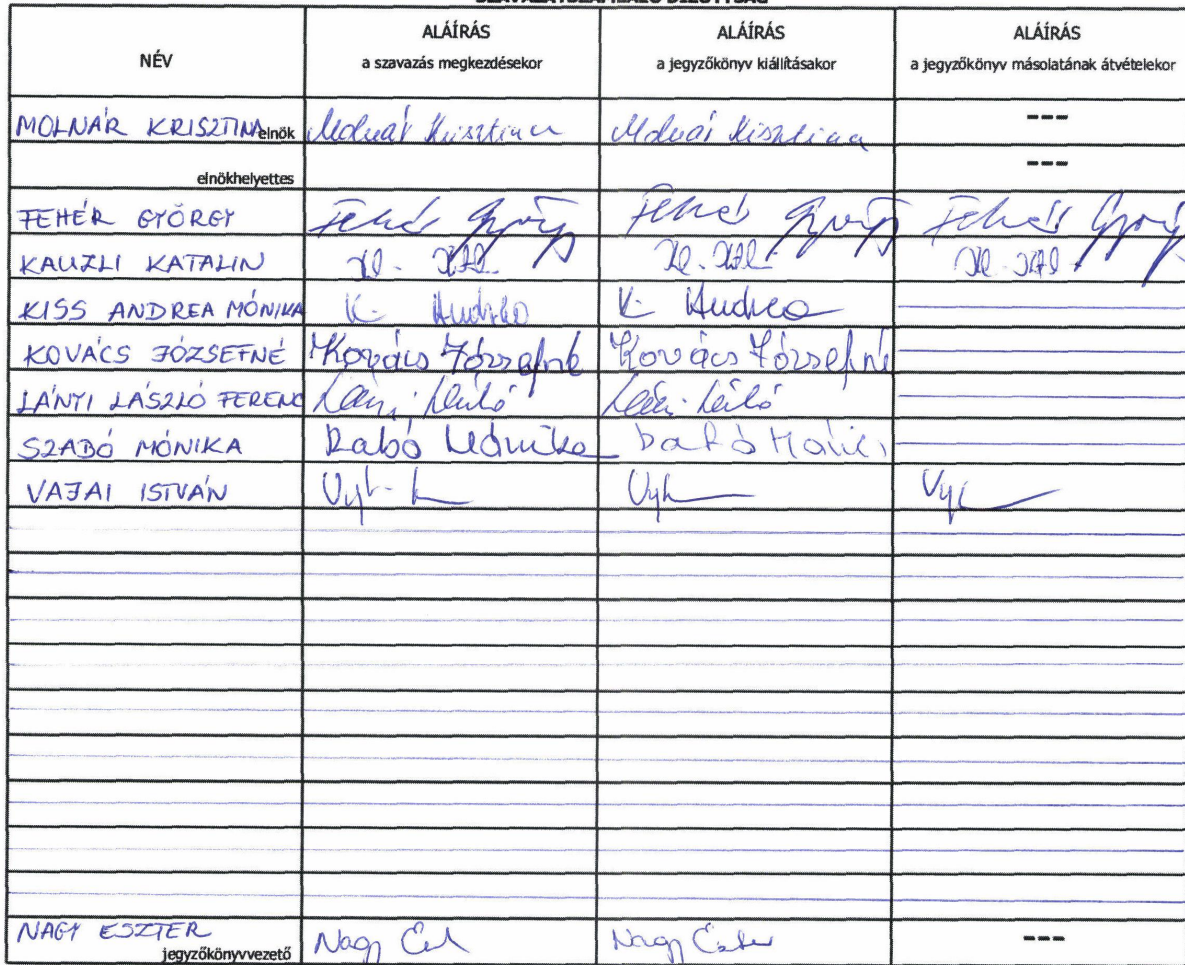 SZAVAZATSZÁMLÁLÓ BIZOTTSÁG
NÉV
ALÁÍRÁS
a szavazás megkezdésekor
ALÁÍRÁS
a jegyzőkönyv kiállításakor
ALÁÍRÁS
a jegyzőkönyv másolatának átvételekor
MOLNÁR KRISZTINA elnök Molnár Krisztina Molnár Krisztina ---
elnökhelyettes ---
FEHÉR GYÖRGY Fehér György Fehér György Fehér György
KAUZLI KATALIN
KISS ANDREA MÓNIKA K. Andrea K. Andrea
KOVÁCS JÓZSEFNÉ Kovács Józsefné Kovács Józsefné
LÁNYI LÁSZLÓ FERENC
SZABÓ MÓNIKA Szabó Mónika Szabó Mónika
VAJAI ISTVÁN
NAGY ESZTER jegyzőkönyvvezető Nagy Nagy Eszter ---